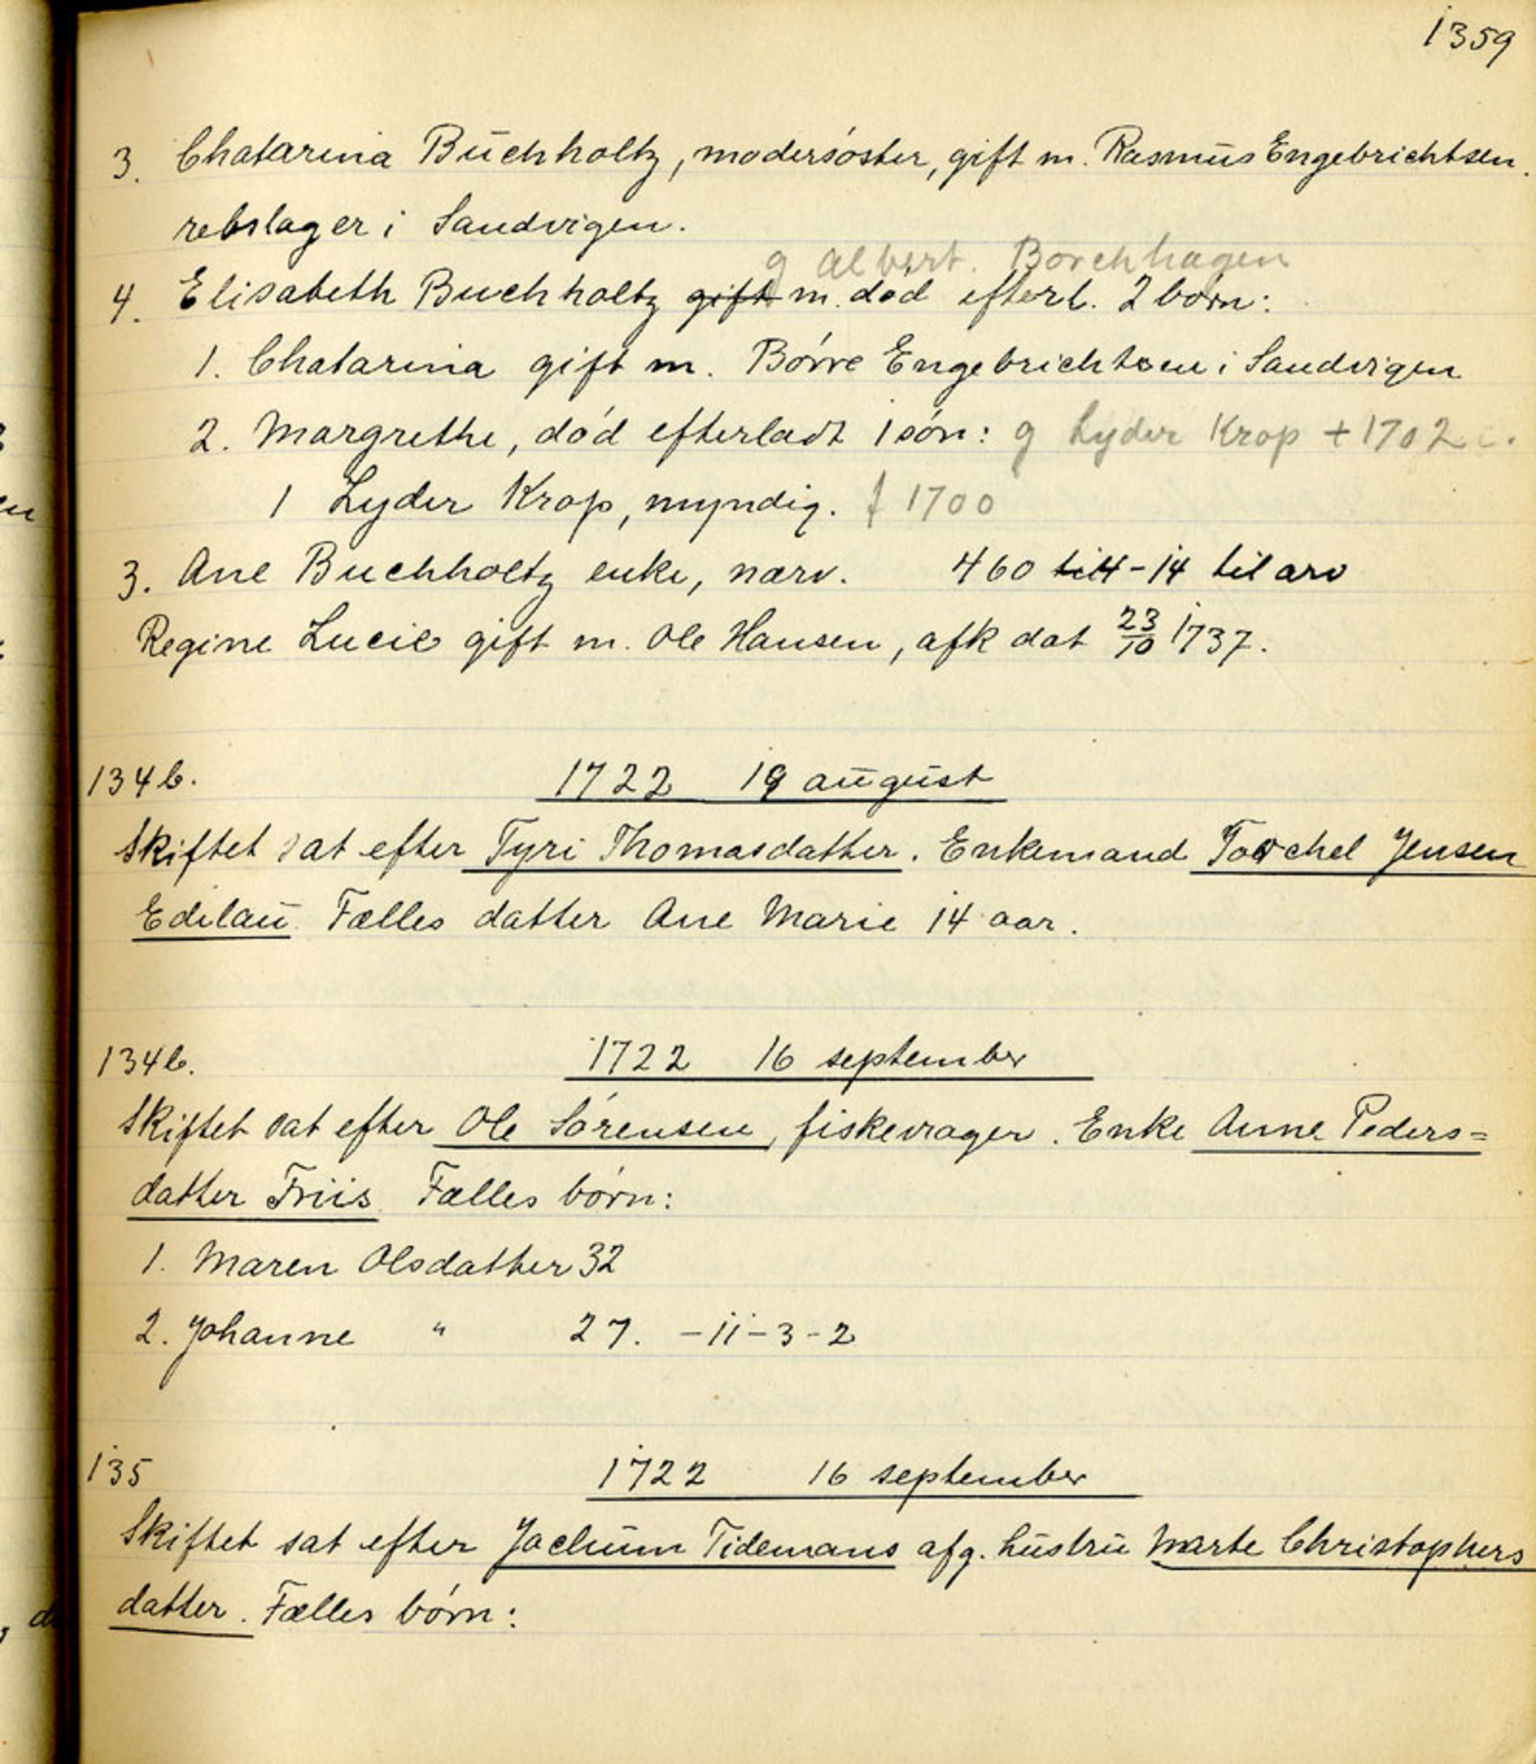 1359
3. Chatarina Buchholtz, modersøster, gift m. Rasmus Engebrichtsen.
rebslager i Sandvigen.
g Albert. Borchhagen
4. Elisabeth Buchholtz gift m. død efterl. 2 børn:
1. Chatarina gift m. Børre Engebrichtsen i Sandvigen
2. Margrethe, død efterladt 1 søn: g Lyder Krop + 1702
1 Lyder Krop, myndig. f 1700
3. Ane Buchholtz enke, nærv. 460 till 4-14 til arv
Regine Lucie gift m. Ole Hansen, afk dat 23/10 1737.
134b. 1722 19 august
Skiftet sat efter Tyri Thomasdatter. Enkemand Torchel Jensen
Edilau Fælles datter Ane Marie 14 aar.
134b. 1722 16 september
Skiftet sat efter Ole Sørensen, fiskevrager. Enke Anne Peders=
datter Friis Fælles børn:
1. Maren Olsdatter 32
2. Johanne " 27. -11-3-2
135 1722 16 september
Skiftet sat efter Jochum Tidemans afg. hustru Marte Christophers
datter. Fælles børn: